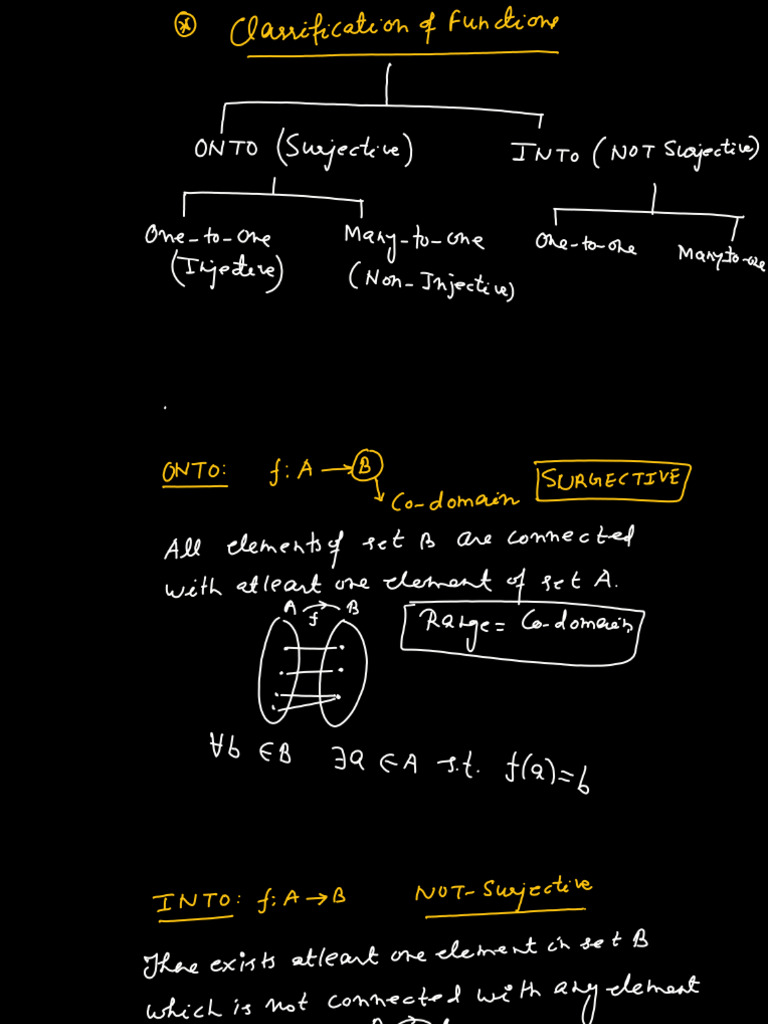 * Classification of Functions
ONTO (Surjective) INTO (NOT Surjective)
One-to-one Many-to-one One-to-one Many-to-one
(Injective) (Non-Injective)
ONTO: f: A → B SURGECTIVE
Co-domain
All elements of set B are connected
with atleast one element of set A.
A f B
Range = Co-domain
∀b ∈ B ∃a ∈ A s.t. f(a) = b
INTO: f: A → B NOT-Surjective
There exists atleast one element in set B
which is not connected with any element